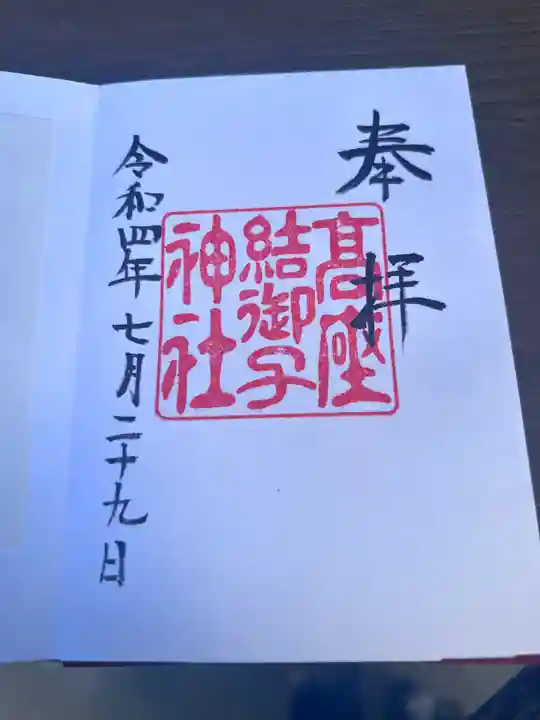 奉拝
高座
結御子
神社
令和四年七月二十九日